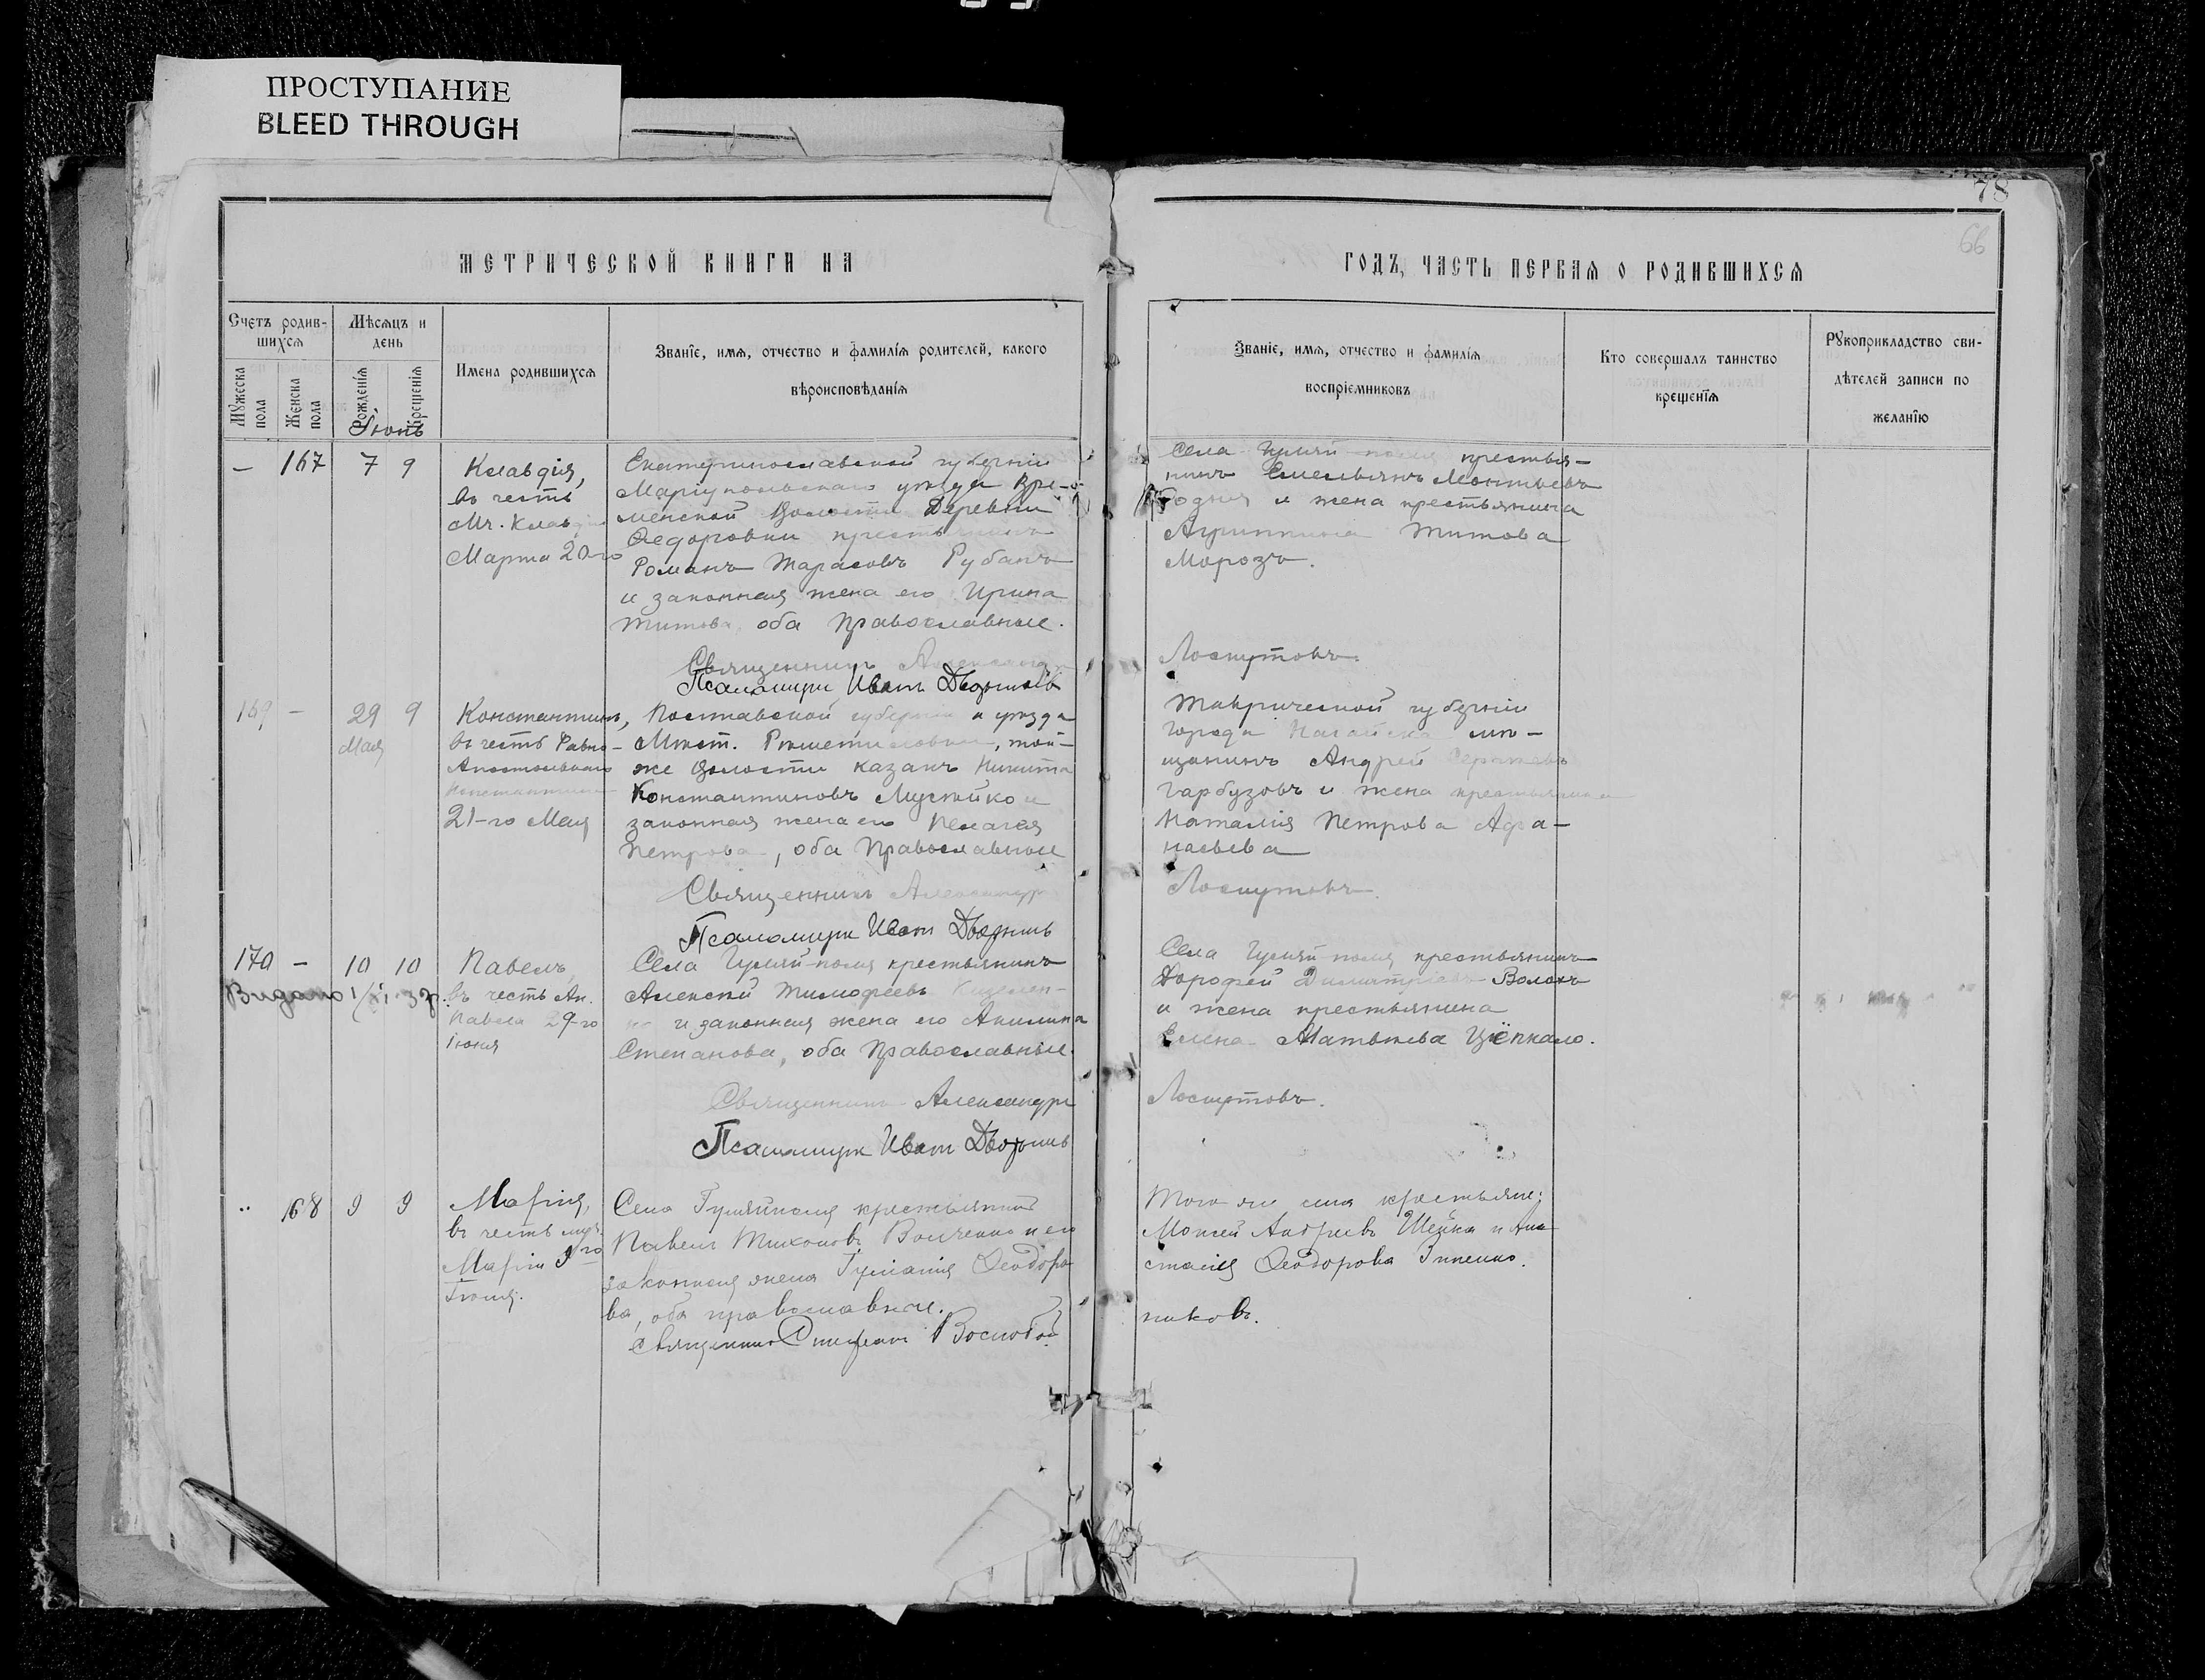 ПРОСТУПАНИЕ
BLEED THROUGH
78
66
МЕТРИЧЕСКОЙ КНИГИ НА
ГОДЪ, ЧАСТЬ ПЕРВАЯ О РОДИВШИХСЯ
Счетъ родив-
шихся
Мужеска
пола
Женска
пола
Мѣсяцъ и
день
Рожденія
Крещенія
Имена родившихся
Званіе, имя, отчество и фамилія родителей, какого
вѣроисповѣданія
Званіе, имя, отчество и фамилія
воспріемниковъ
Кто совершалъ таинство
крещенія
Рукоприкладство сви-
дѣтелей записи по
желанію
Іюнь
— 167 7 9
Клавдія,
въ честь
Мч. Клавдіи
Марта 20-го
Екатеринославской губерніи
Маріупольскаго уѣзда Вре-
менской Волости Деревни
Федоровки крестьянинъ
Романъ Тарасовъ Рубанъ
и законная жена его Ирина
Титова оба Православные.
Священникъ Александръ
Псаломщикъ Иванъ
Села Гуляй-поля крестья-
нинъ Емельянъ Леонтьевъ
и жена крестьянина
Агриппина Титова
Морозъ.
Лоскутовъ.
169 — 29 9
Мая
Константинъ,
въ честь Равно-
Апостольнаго
Константина
21-го Мая
Полтавской губерніи и уѣзда
Мѣст. Рѣшетиловки, той-
же Волости казакъ Никита
Константиновъ и
законная жена его Пелагея
Петрова, оба Православные
Священникъ Александръ
Псаломщикъ Иванъ
Таврической губерніи
города Ногайска мѣ-
щанинъ Андрей Сергѣевъ
Гарбузовъ и жена крестьянина
Наталія Петрова Афа-
насьева
Лоскутовъ.
170 — 10 10
Видано
Павелъ,
въ честь Ап.
Павла 29-го
Іюня
Села Гуляй-поля крестьянинъ
Алексѣй Тимофеевъ
и законная жена его Акилина
Степанова, оба Православные.
Священникъ Александръ
Псаломщикъ Иванъ
Села Гуляй-поля крестьянинъ
Дорофей Димитріевъ Волохъ
и жена крестьянина
Елена Матвѣева Цёпкало.
Лоскутовъ.
168 9 9
Марія,
въ честь муч.
Маріи 9го
Іюня.
Села Гуляйполя крестьянинъ
Павелъ Тихоновъ Волченко и его
законная жена Гуліанія Ѳеодоро
ва, оба православные.
Священникъ Стефанъ
Того же села крестьяне:
Моисей Андреевъ Шейка и Ана
стасія Ѳеодорова
никовъ.